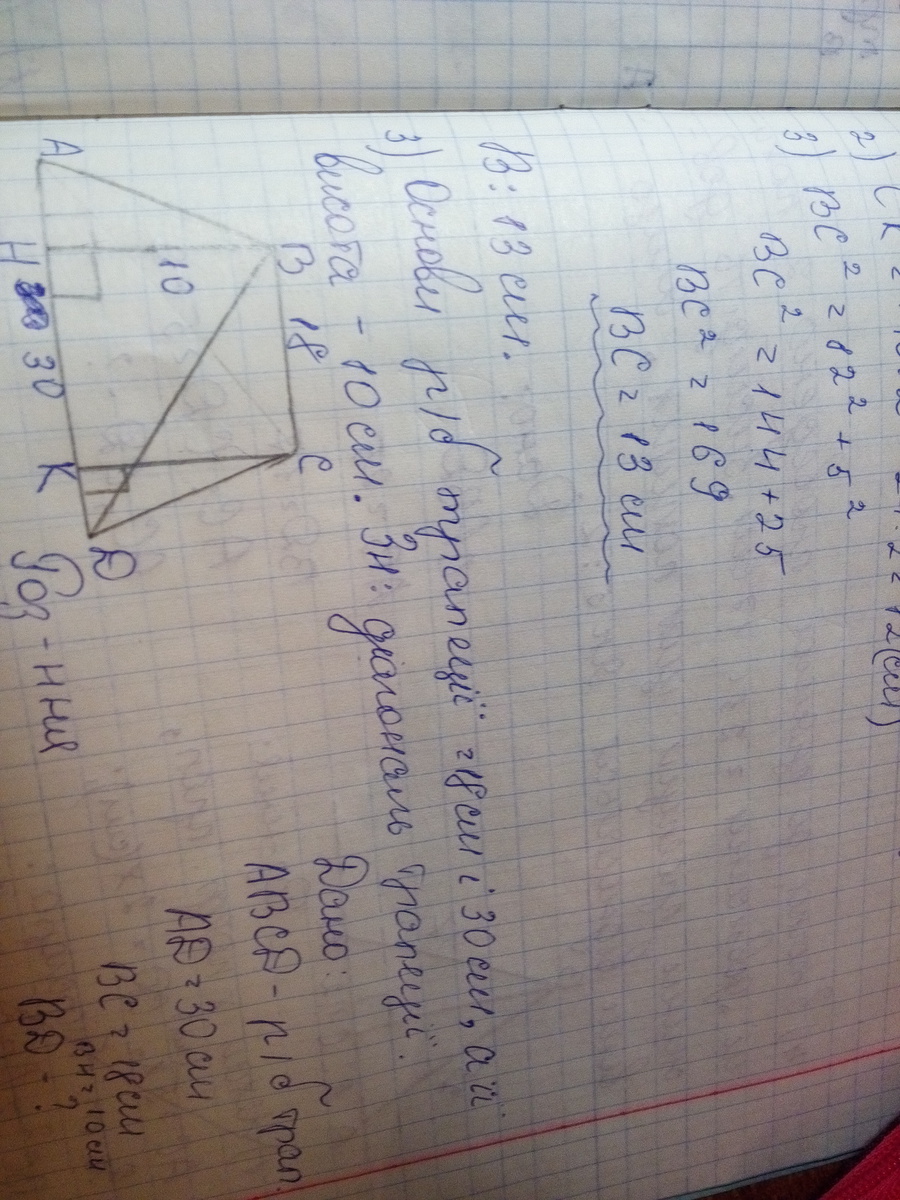 2) CK =
3) BC² = 12² + 5²
BC² = 144 + 25
BC² = 169
BC = 13 см
В: 13 см.
3) Основи р/б трапеції = 18см і 30см, а її
висота - 10 см. Зн: діагональ трапеції.
Дано:
ABCD - р/б трап.
AD = 30 см
BC = 18см
BH = 10 см
BD - ?
A
B
18
C
10
H
30
K
D
Роз-ння